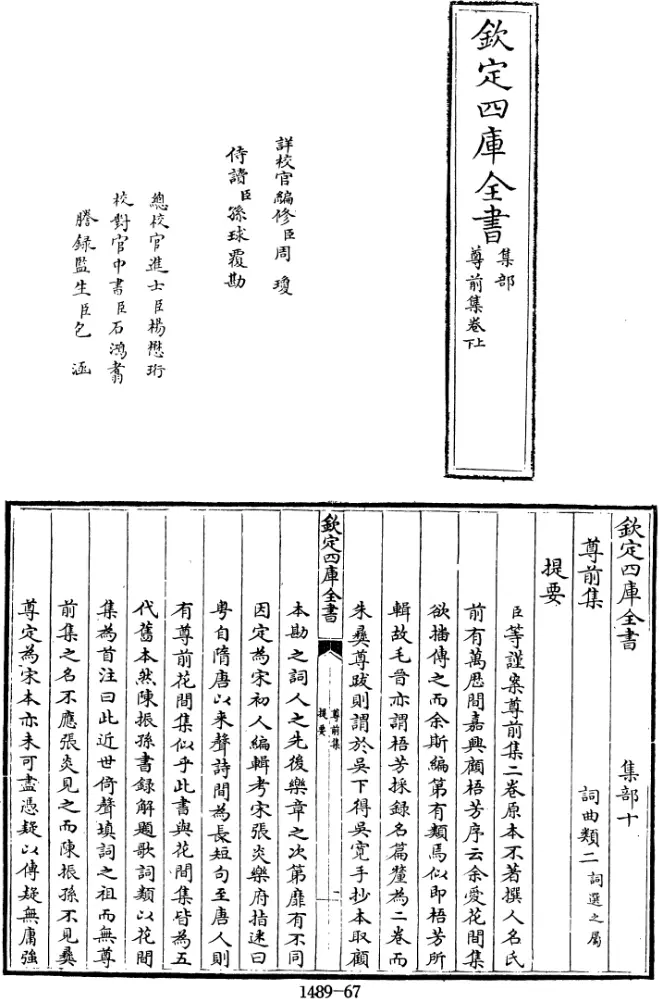 欽定四庫全書
集部
尊前集卷上下
詳校官編修臣周瓊
侍讀臣孫球覆勘
總校官進士臣楊懋珩
校對官中書臣石鴻翥
謄録監生臣包涵
欽定四庫全書 集部十
尊前集 詞曲類二 詞選之屬
提要
臣等謹案尊前集二卷原本不著撰人名氏
前有萬厯間嘉興顧梧芳序云余愛花間集
欲播傳之而余斯編第有類焉似即梧芳所
輯故毛晉亦謂梧芳採録名篇釐為二卷而
朱彛尊跋則謂於吳下得吳寛手抄本取顧
欽定四庫全書
尊前集
提要
二
本勘之詞人之先後樂章之次第靡有不同
因定為宋初人編輯考宋張炎樂府指迷曰
粤自隋唐以来聲詩間為長短句至唐人則
有尊前花間集似乎此書與花間集皆為五
代舊本然陳振孫書録解題歌詞類以花間
集為首注曰此近世倚聲填詞之祖而無尊
前集之名不應張炎見之而陳振孫不見彛
尊定為宋本亦未可盡憑疑以傳疑無庸強
1489-67